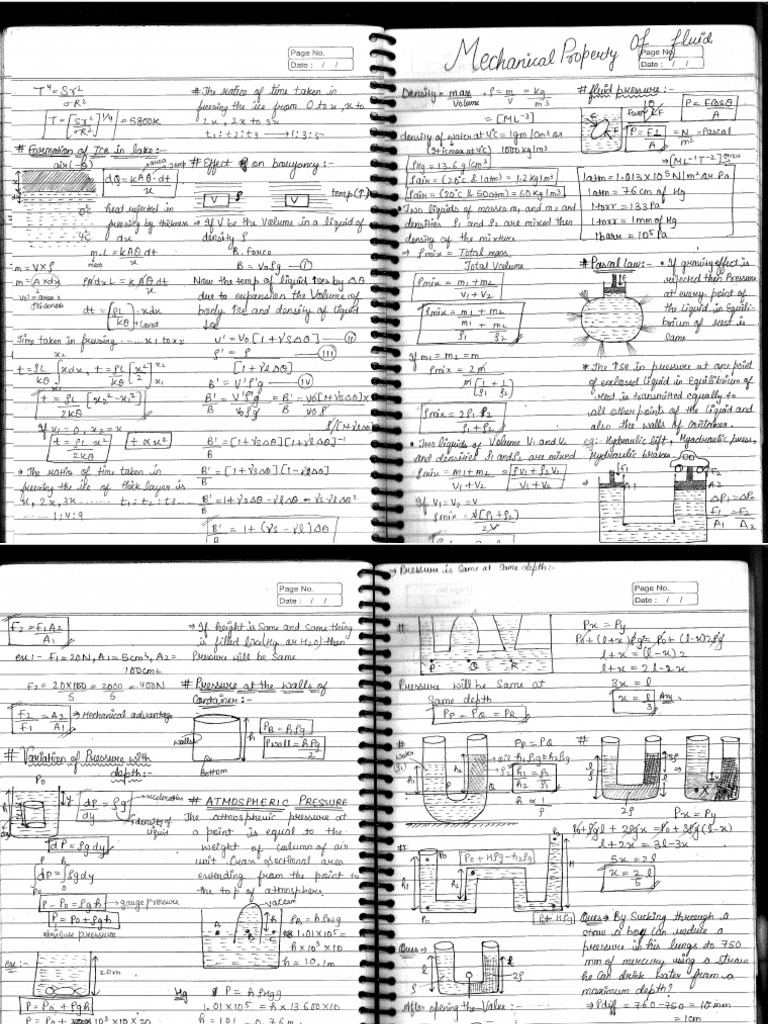 Page No.
Date : / /
T⁴ = Sr²
σR²
T = [Sr²/σR²]^1/4 = 5800K
# Formation of Ice in lake:-
air (-θ)
dQ = kAθ·dt
x
0°C
4°C
heat rejected in
freezing by thickness
dx
m.L = kAθdt
mass x
m = V×ρ
m = Axdx
ρAdxL = kAθdt
x
dt = [ρL/kθ] x dx
Time taken in freezing ...... x₁ to x₂
t = ρL/kθ ∫xdx, t = ρL/kθ [x²/2]
t = ρL/2kθ [x₂² - x₁²]
If x₁ = 0, x₂ = x
t = ρL x²/2kθ
t ∝ x²
→ The ratio of time taken in
freezing the ice of thick layer is
x, 2x, 3x ........ t₁ : t₂ : t₃ ....
1:4:9
# The ratios of time taken in
freezing the ice from 0 to x, x to
2x, 2x to 3x
t₁:t₂:t₃ → 1:3:5
# Effect of θ on buoyancy:-
V ρ V temp(↑)
→ If V be the Volume in a liquid of
density ρ
B. force
B = V₀ρg — (I)
Now the temp of liquid ↑ses by Δθ
due to expansion the Volume of
body ↑se and density of liquid
↓se
V' = V₀[1+γsΔθ] — (II)
ρ' = ρ
[1+γlΔθ] (III)
B' = V'ρ'g — (IV)
B'/B = V'ρ'g/V₀ρg
B'/B = [1+γsΔθ][1+γlΔθ]⁻¹
B'/B = [1+γsΔθ][1-γlΔθ]
B'/B = 1+γsΔθ - γlΔθ - γsγlΔθ²
B'/B = 1+(γs-γl)Δθ
Mechanical Property Of fluid
Page No.
Date : / /
Density = mass/Volume ρ = m/V = kg/m³
= [ML⁻³]
density of water at 4°C = 1gm/cm³ or
1000kg/m³
ρHg = 13.6g/cm³
ρair = (20°C & 1atm) = 1.2kg/m³
ρair = (20°C & 50atm) = 60kg/m³
• Two liquids of masses m₁ and m₂ and
densities ρ₁ and ρ₂ are mixed then
density of the mixture
→ ρmix = Total mass
Total Volume
ρmix = m₁+m₂
V₁+V₂
ρmix = m₁+m₂
m₁/ρ₁ + m₂/ρ₂
if m₁ = m₂ = m
ρmix = 2m
m[1/ρ₁ + 1/ρ₂]
ρmix = 2ρ₁ρ₂
ρ₁+ρ₂
• Two liquids of Volume V₁ and V₂
and densities ρ₁ and ρ₂ are mixed
ρmix = m₁+m₂/V₁+V₂ = ρ₁V₁+ρ₂V₂/V₁+V₂
If V₁ = V₂ = V
ρmix = V[ρ₁+ρ₂]
2V
# fluid pressure:-
P = Fcosθ
A
P = F⊥/A = N/m² = Pascal
→ [ML⁻¹T⁻²]
1atm = 1.013×10⁵N/m² or Pa
1atm = 76cm of Hg
1torr = 133Pa
1torr = 1mm of Hg
1bar = 10⁵Pa
# Pascal law:- • If gravity effect is
rejected then Pressure
at every point of
the liquid in Equili-
brium of rest is
Same
* The ↑se in pressure at one point
of enclosed liquid in Equilibrium of
rest is transmitted equally to
all other points of the liquid and
also the walls of container.
eg:- Hydraulic lift, Hydraulic press,
Hydraulic brakes
F₁ F₂
A₁ A₂
ΔP₁ = ΔP₂
F₁/A₁ = F₂/A₂
Page No.
Date : / /
F₂ = F₁A₂
A₁
ex:- F₁ = 20N, A₁ = 5cm², A₂ =
100cm²
F₂ = 20×100/5 = 2000/5 = 400N
F₂/F₁ = A₂/A₁ → Mechanical advantage
# Variation of Pressure with
depth:-
P₀
dP/dy = ρg acceleration
density of
liquid
dP = ρg dy
∫dP = ∫ρg dy
P - P₀ = ρgh → gauge pressure
P = P₀ + ρgh
absolute pressure
ex:- 20m
P = P₀ + ρgh
→ If height is Same and Same thing
is filled like (Hg or H₂O) then
Pressure will be Same
# Pressure at the walls of
Container:-
walls h
Bottom
PB = hρg
Pwall = hρg
2
# ATMOSPHERIC PRESSURE
The atmospheric pressure at
a point is equal to the
weight of column of air
unit Cross sectional area
extending from the point to
the top of atmosphere.
vaccum
A B C
PB = hρwg
1.01×10⁵ =
h×10³×10
h = 10.1m
Hg P = hρHgg
1.01×10⁵ = h×13600×10
→ Pressure is Same at Same depth:-
Page No.
Date : / /
#
P Q R
Pressure will be Same at
Same depth
PP = PQ = PR
Px = Py
P₀+(l+x)ρg = P₀+(l-x)2ρg
l+x = (l-x)2
l+x = 2l-2x
3x = l
x = l/3 Ans
#
water
PP = PQ
h₁/h₂ = ρ₂/ρ₁
h ∝ 1/ρ
#
2ρ
Px = Py
P₀+ρgl+2ρgx = P₀+3ρg(l-x)
l+2x = 3l-3x
5x = 2l
x = 2l/5
#
P₀+Hρg-h₂ρg
P₀+Hρg
Ques→
After opening the Valve :-
Ques→ By Sucking through a
straw a boy can reduce a
pressure in his lungs to 750
mm of mercury using a straw
he Can drink water from a
maximum depth?
→ Pdiff = 760-750 = 10mm
= 1cm